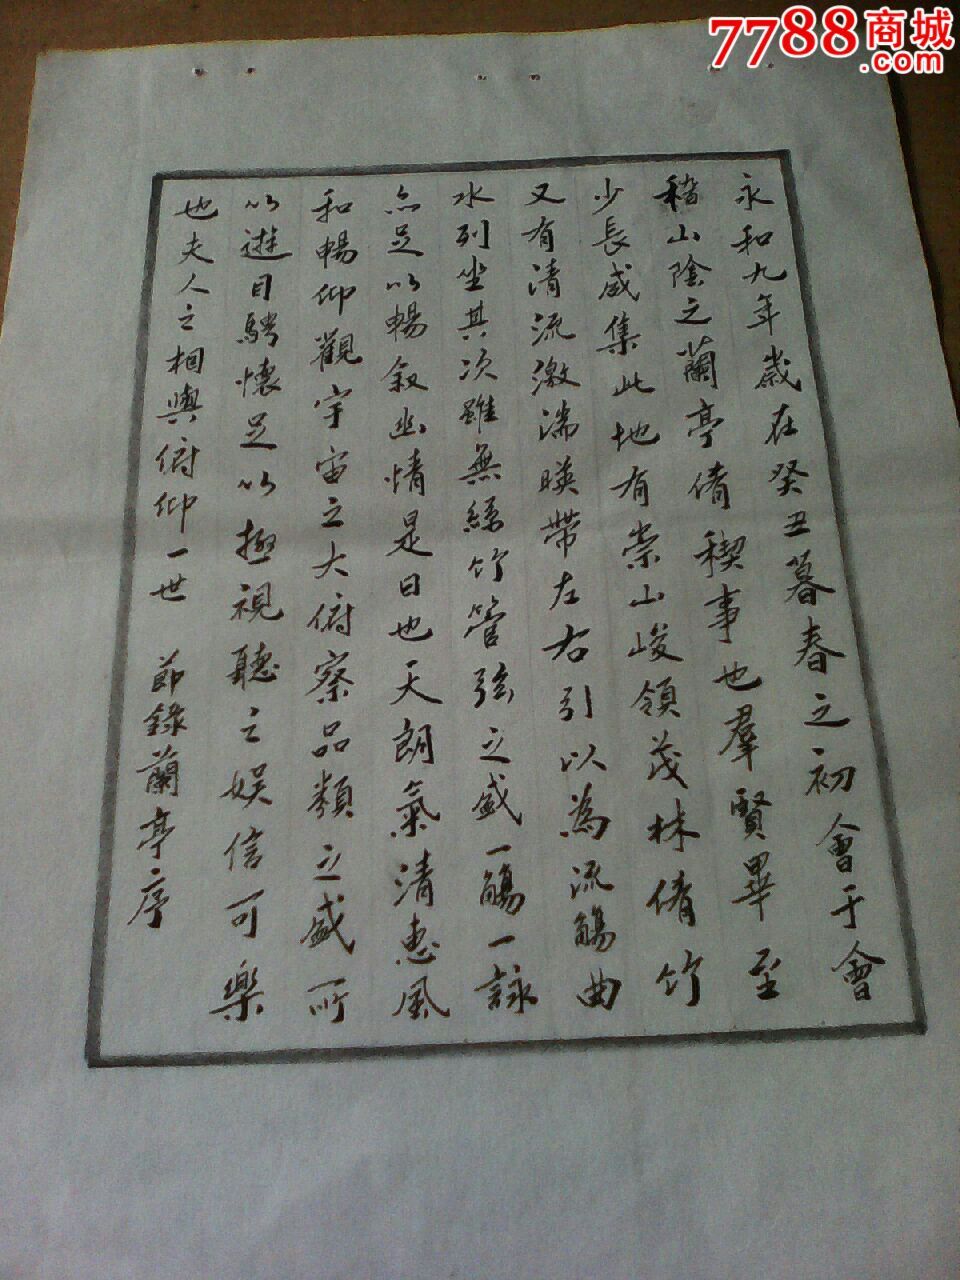 永和九年歲在癸丑暮春之初會于會
稽山陰之蘭亭脩稧事也羣賢畢至
少長咸集此地有崇山峻領茂林脩竹
又有清流激湍暎帶左右引以為流觴曲
水列坐其次雖無絲竹管弦之盛一觴一詠
亦足以暢叙幽情是日也天朗氣清惠風
和暢仰觀宇宙之大俯察品類之盛所
以遊目騁懷足以極視聽之娱信可樂
也夫人之相與俯仰一世 節錄蘭亭序
7788商城
.com